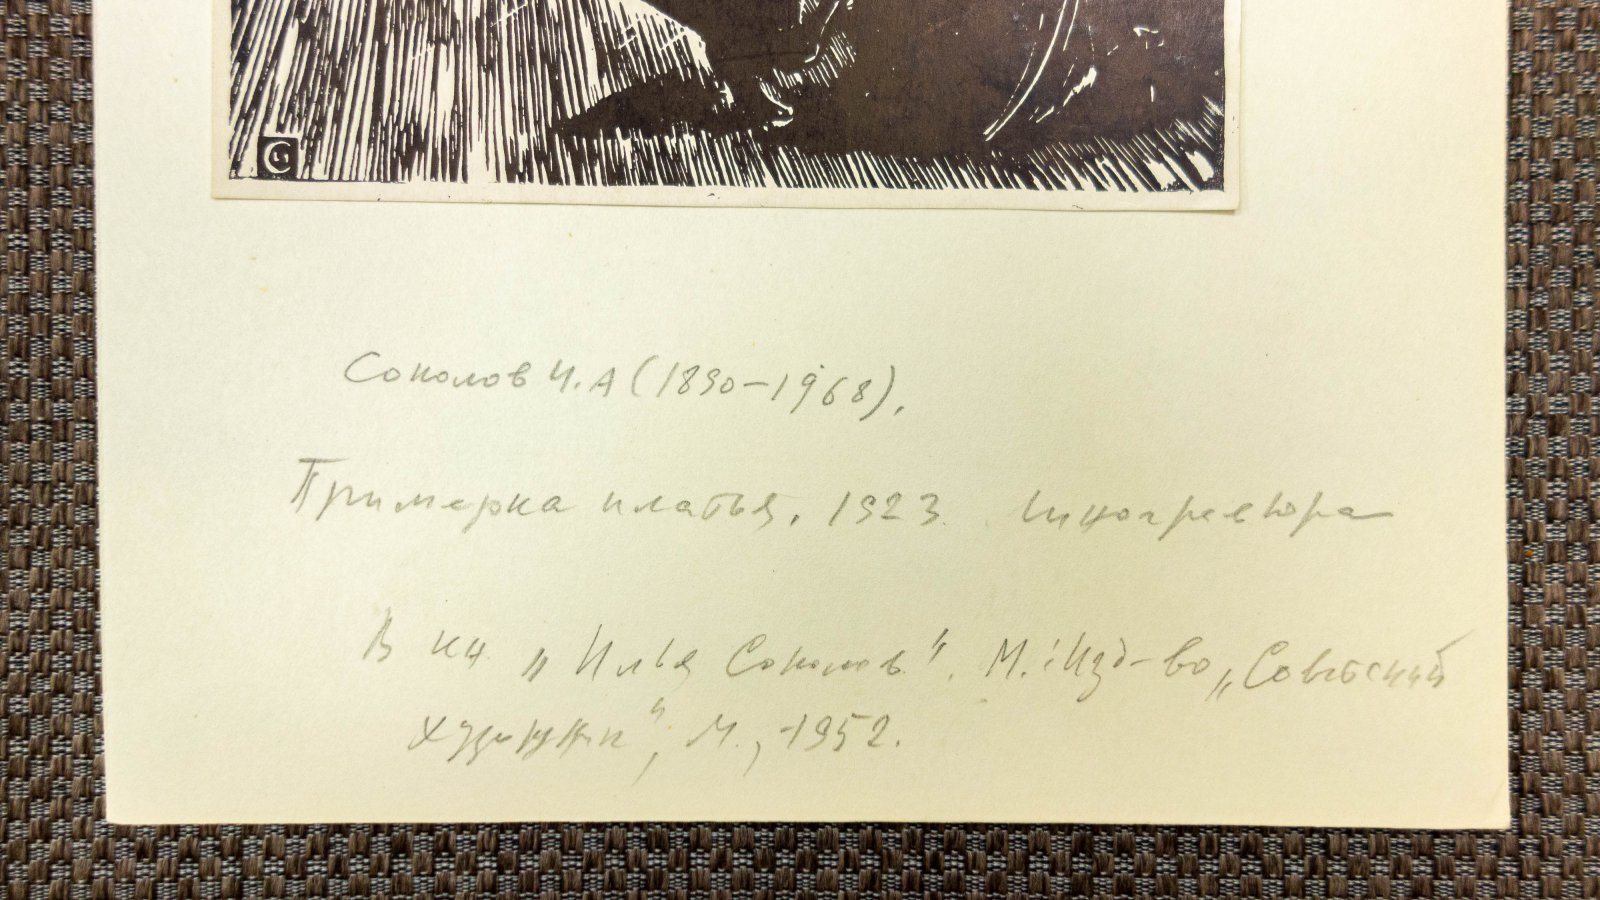 Соколов И.А (1890-1968).
Примерка платья. 1923. Линогравюра
В кн „Илья Соколов". М.: Изд-во „Советский
художник", М., 1952.